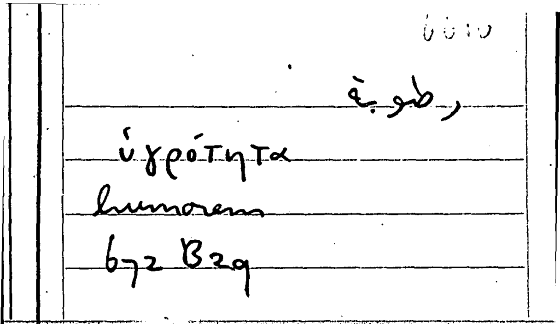 رطوبة
ὑγρότητα
humorem
672 B29